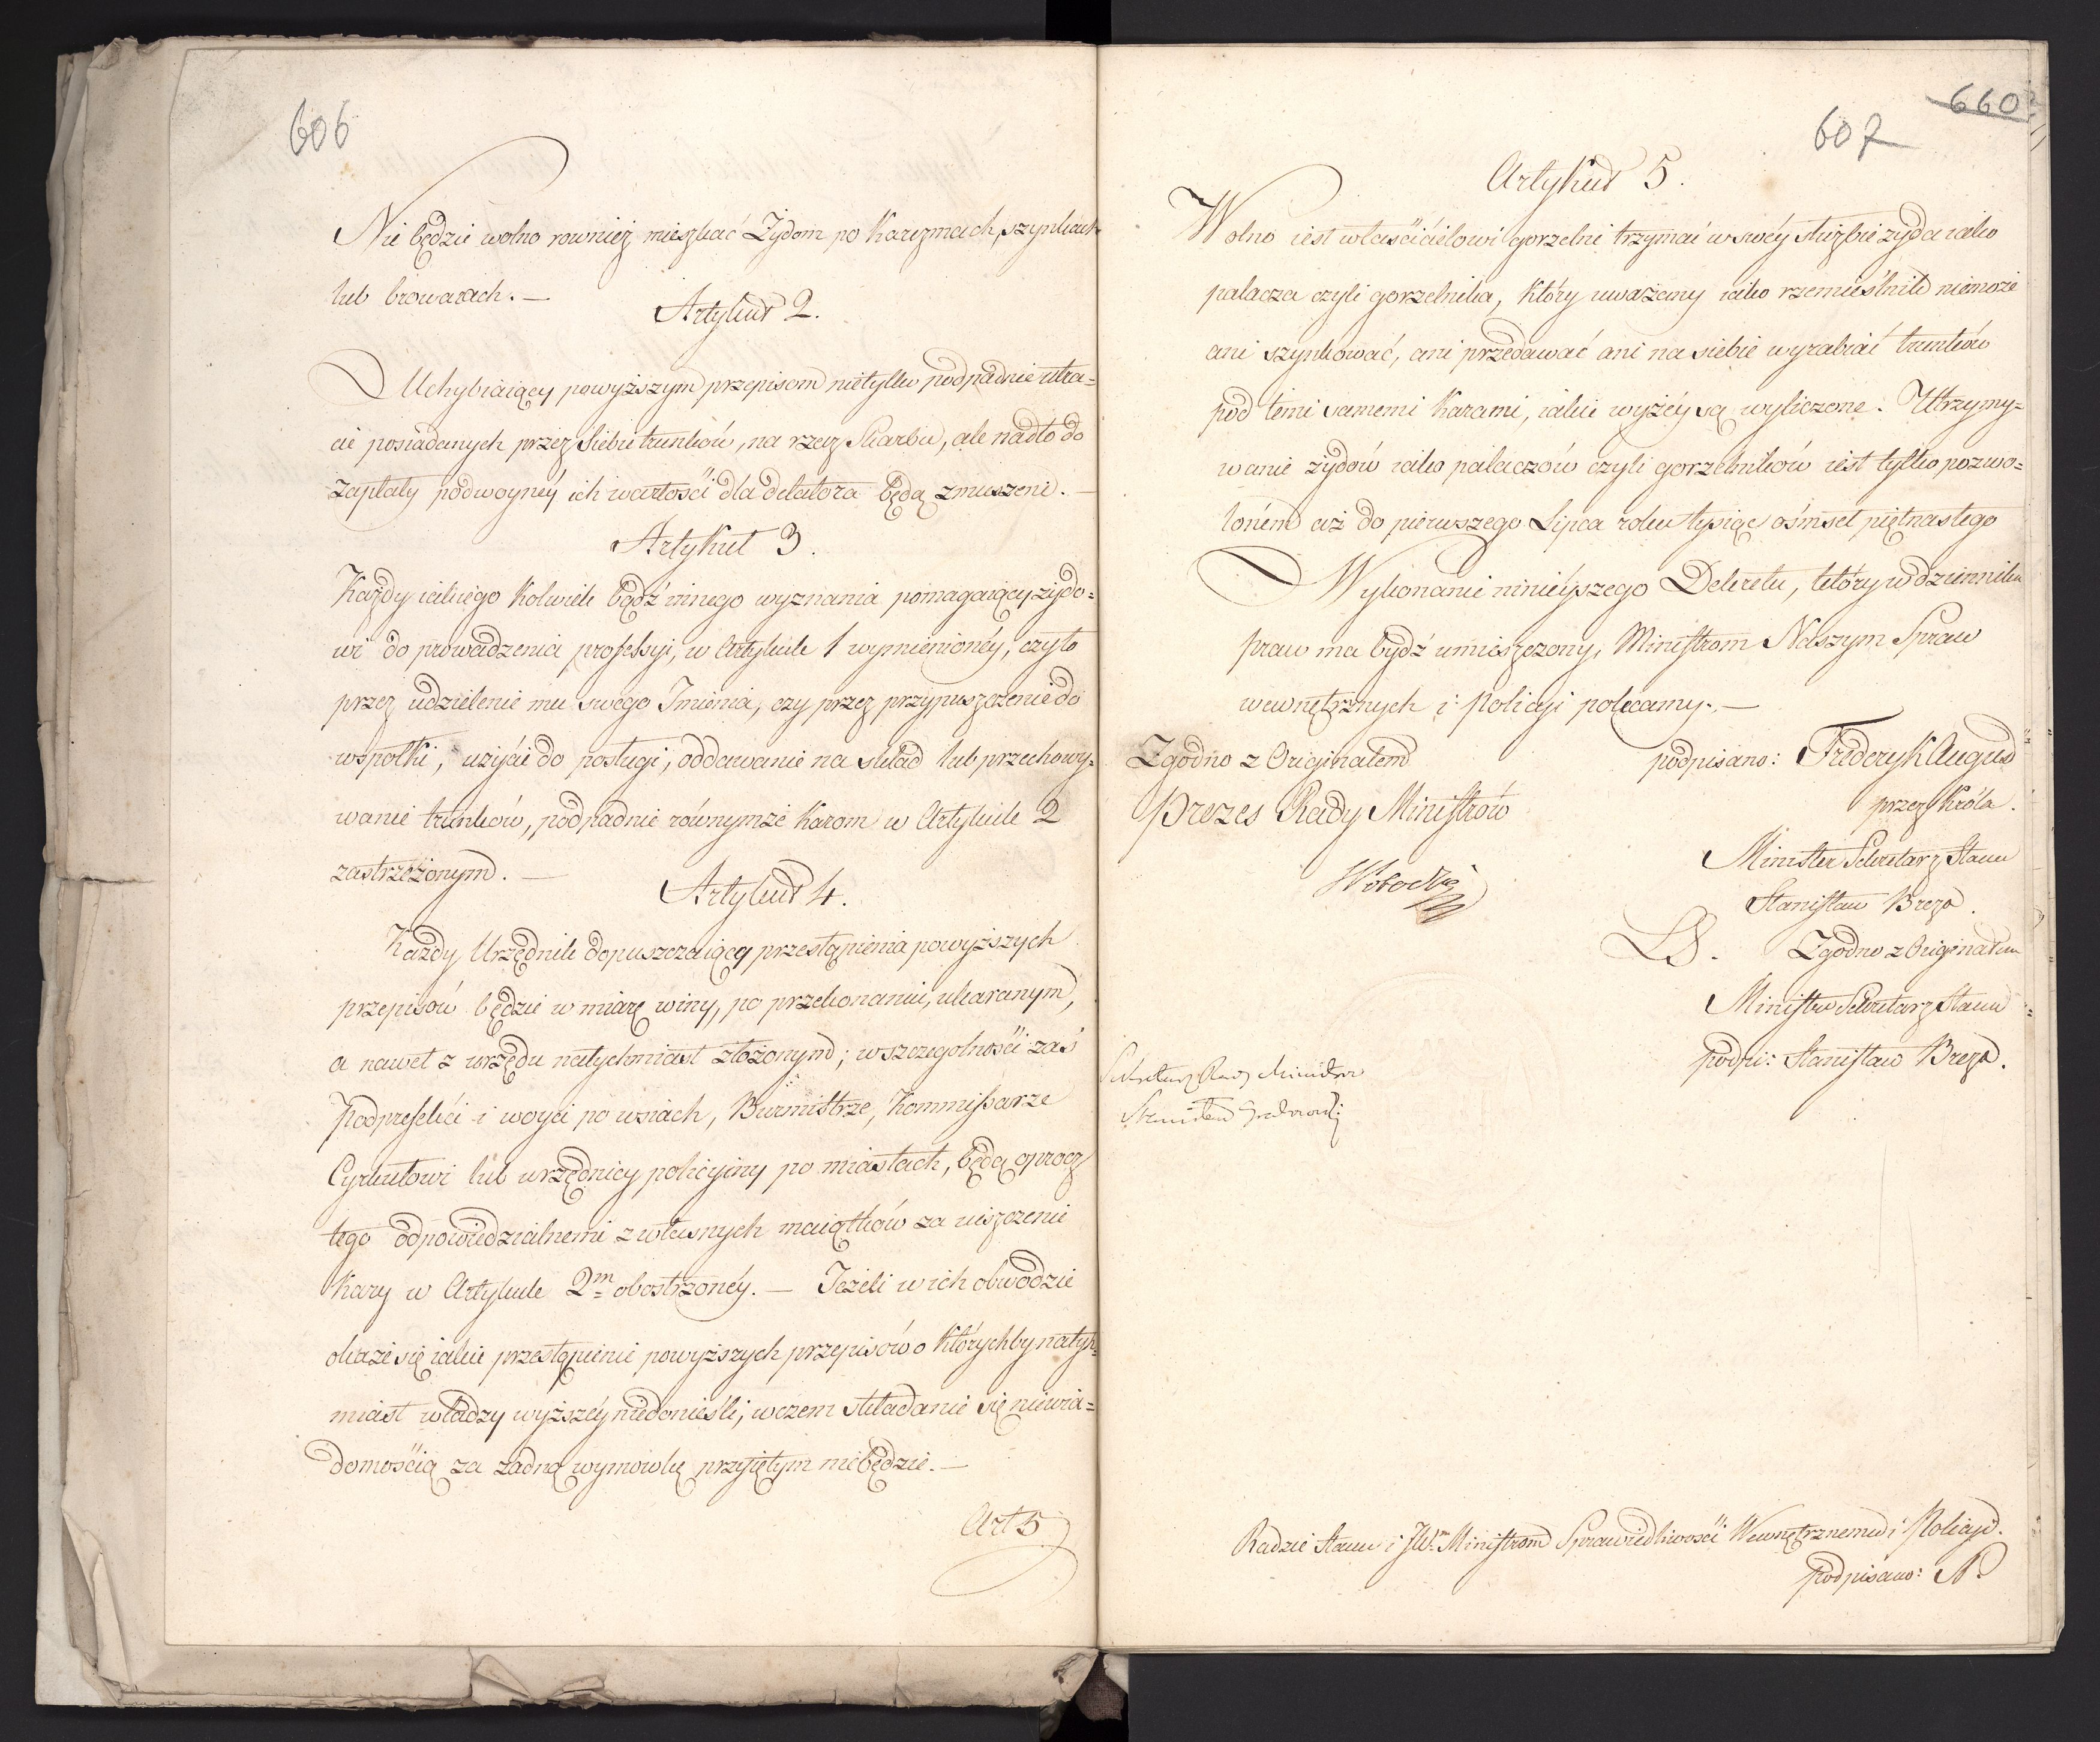 606
Nie będzie wolno rownież mieszkać Żydom po Karczmach, szynkach
lub browarach. —
Artykuł 2.
Uchybiaiący powyższym przepisom nietylko podpadnie utra-
cie posiadanych przez siebie trunków, na rzecz Skarbu, ale nadto do
zapłaty podwoynéy ich wartości dla delatora będą zmuszeni. —
Artykuł 3.
Każdy iakiego kolwiek bądź innego wyznania pomagaiący żydo-
wi do prowadzenia professyi, w Artykule 1 wymienionéy, czyto
przez udzielenie mu swego Imienia, czy przez przypuszczenie do
wspołki, użycie do posługi, oddawanie na skład lub przechowy-
wanie trunków, podpadnie równymże karom w Artykule 2
zastrzeżonym. —
Artykuł 4.
Każdy Urzędnik dopuszczaiący przestąpienia powyższych
przepisów będzie w miarę winy, po przekonaniu, ukaranym,
a nawet z urzędu natychmiast złożonym; w szczegolności zaś
Podprefekci i woyci po wsiach, Burmistrze, Kommissarze
Cyrkułowi lub urzędnicy policyiny po miastach, będą oprocz
tego odpowiedzialnemi z własnych maiątków za uiszczenie
kary w Artykule 2m obostrzonéy. — Jeżeli w ich obwodzie
okaże się iakie przestąpienie powyższych przepisów o którychby natych-
miast władzy wyższéy niedonieśli; wczem składanie się niewia-
domością za żadną wymowkę przyiętym niebędzie. —
Art 5
660
607
Artykuł 5.
Wolno iest właścicielowi gorzelni trzymać w swéy służbie żyda iako
palacza czyli gorzelnika, który uważany iako rzemieślnik niemoże
ani szynkować, ani przedawać ani na siebie wyrabiać trunków
pod temi samemi karami, iakie wyżéy są wyliczone. Utrzymy-
wanie żydów iako palaczów czyli gorzelników iest tylko pozwo-
loném aż do pierwszego Lipca roku tysiąc ośmset piętnastego
Wykonanie ninieyszego Dekretu, który w dzienniku
praw ma bydź umieszczony, Ministrom Naszym Spraw
wewnętrznych i Policyi polecamy. —
Zgodno z Originałem
Prezes Rady Ministrów
podpisano: Frideryk August
przez Króla.
Minister Sekretarz Stanu
Stanisław Breza.
LS. Zgodno z Originałem
Minister Sekretarz Stanu
podpi: Stanisław Breza.
Sekretarz Rady Ministrów
Radzie Stanu i JWm Ministrom Sprawiedliwości Wewnętrznemu i Policyi.
podpisano: N.